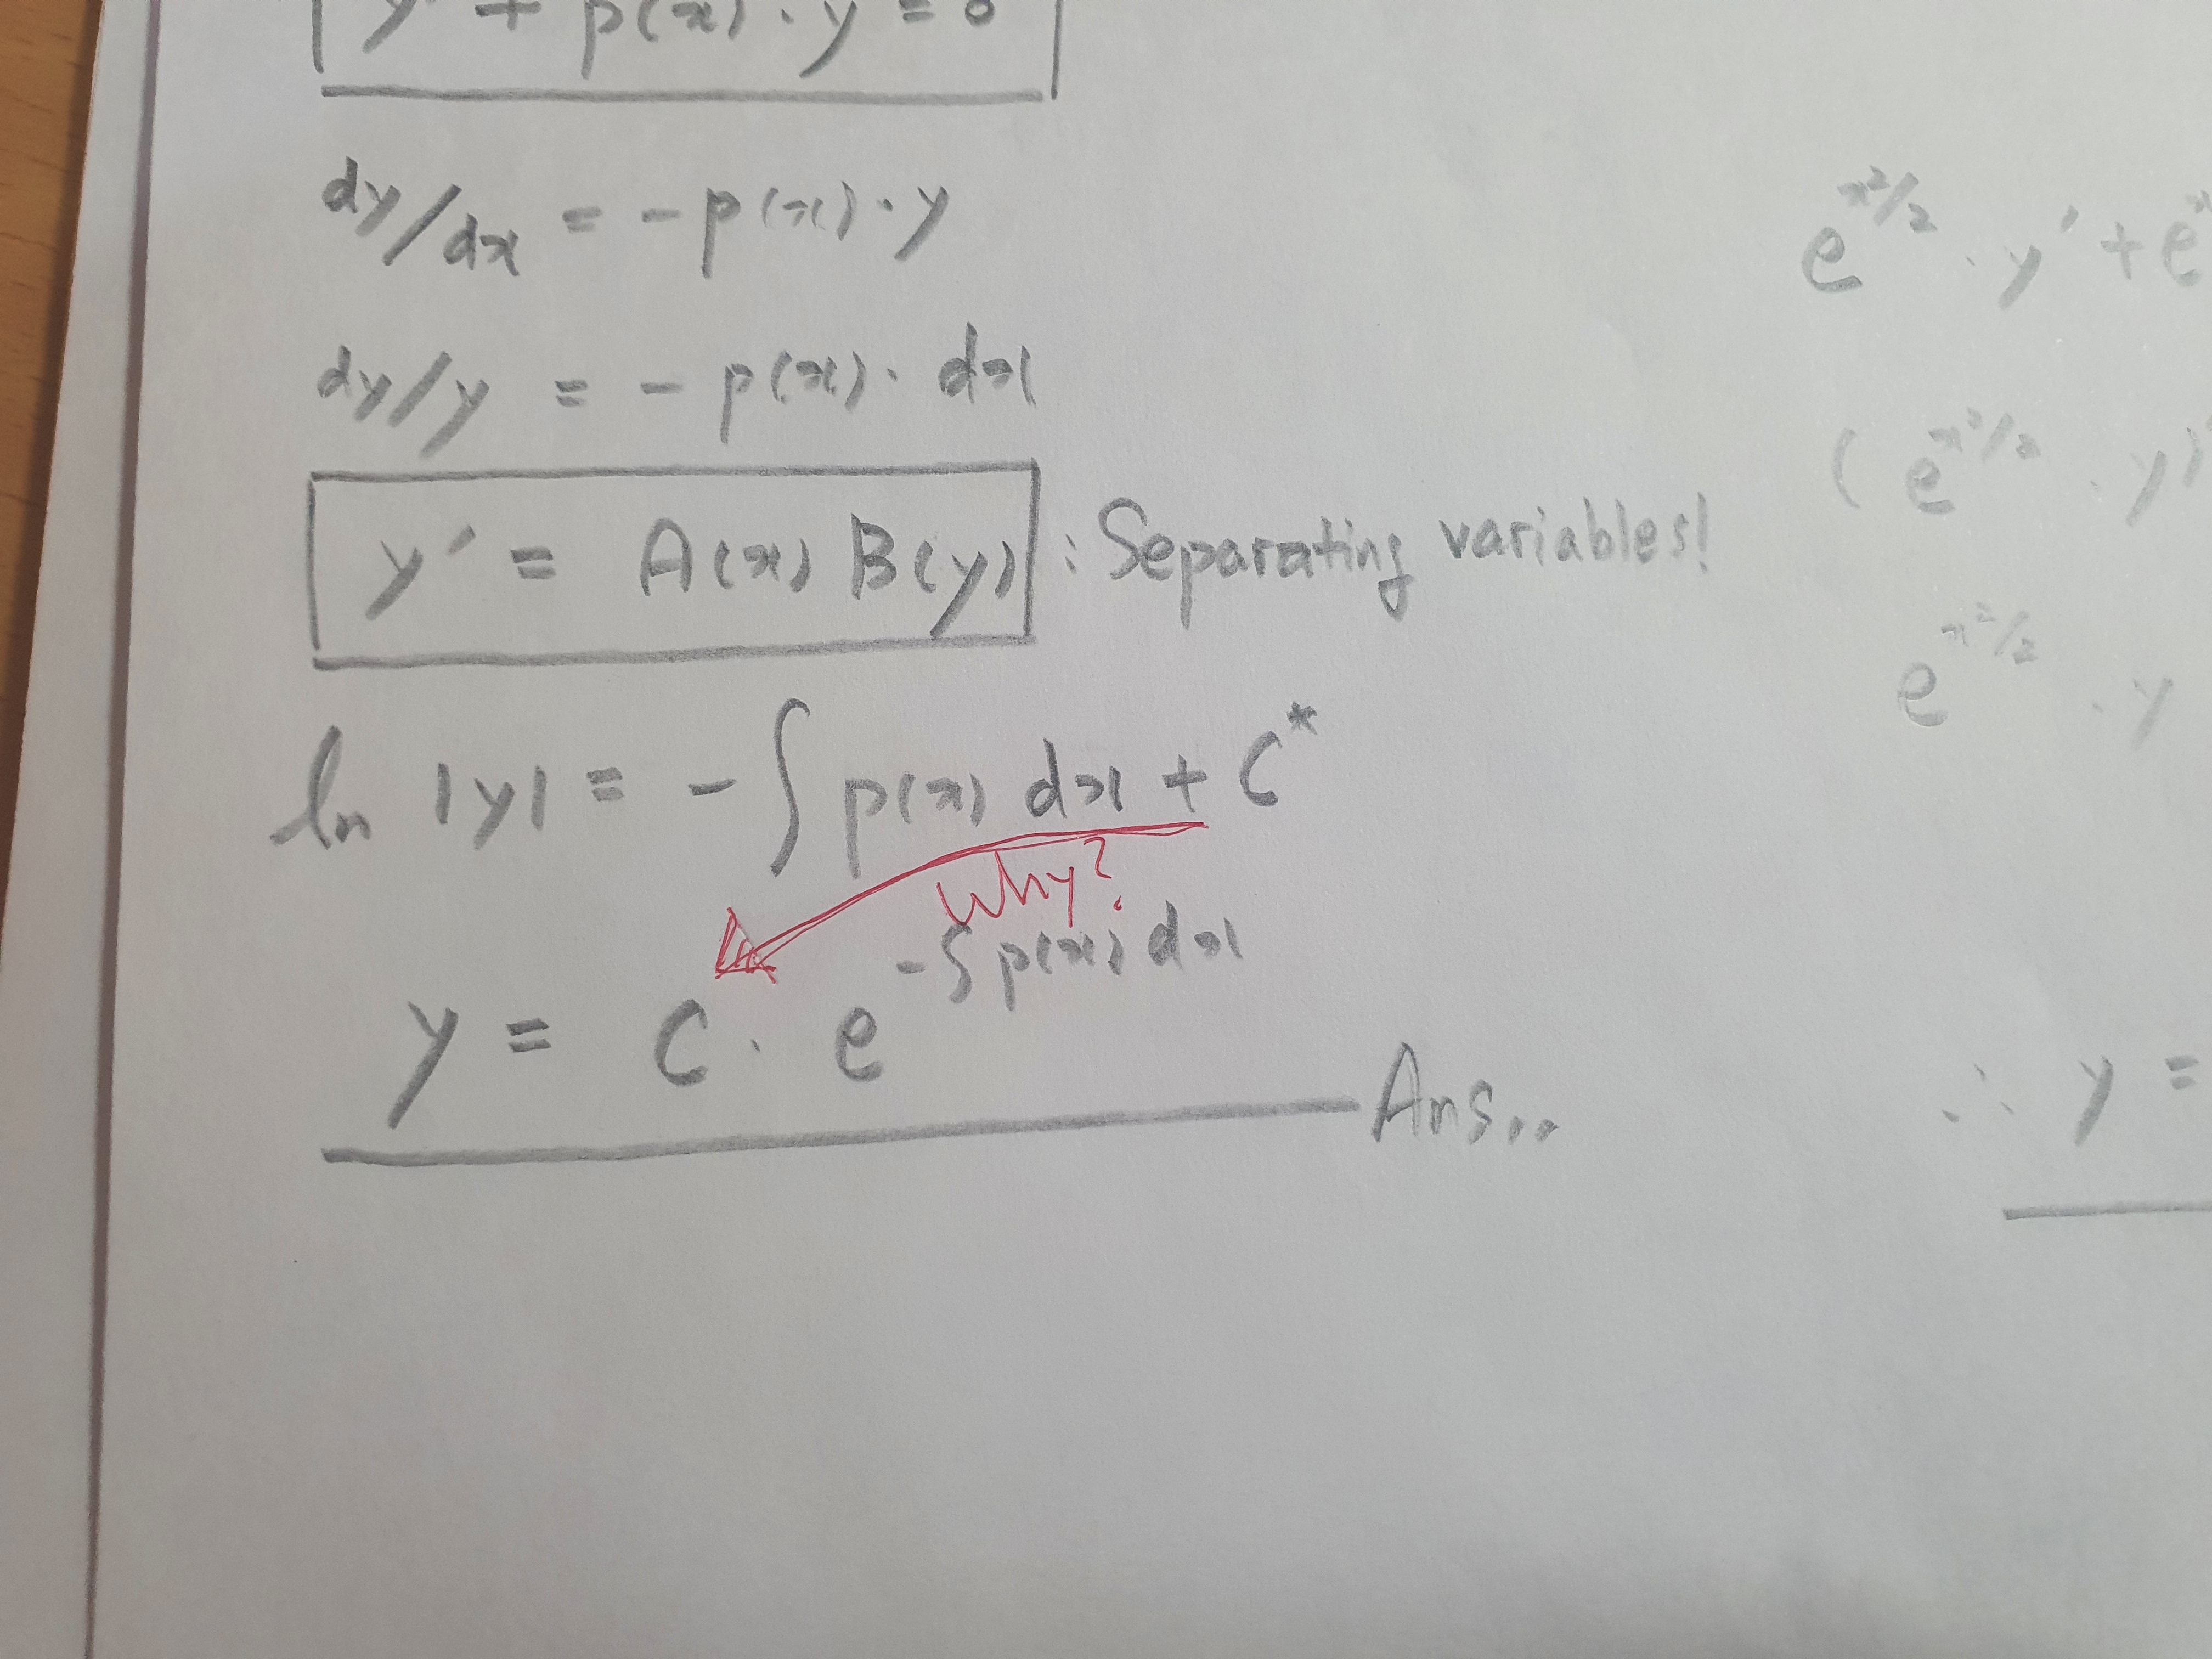 y' + p(x) · y = 0
dy/dx = - p(x) · y
dy/y = - p(x) · dx
y' = A(x) B(y) : Separating variables!
ln |y| = - ∫ p(x) dx + C*
Why?
y = C · e^{-∫ p(x) dx}
Ans..
e^{x²/2} · y' + e
( e^{x²/2} · y)
e^{x²/2} · y
∴ y =